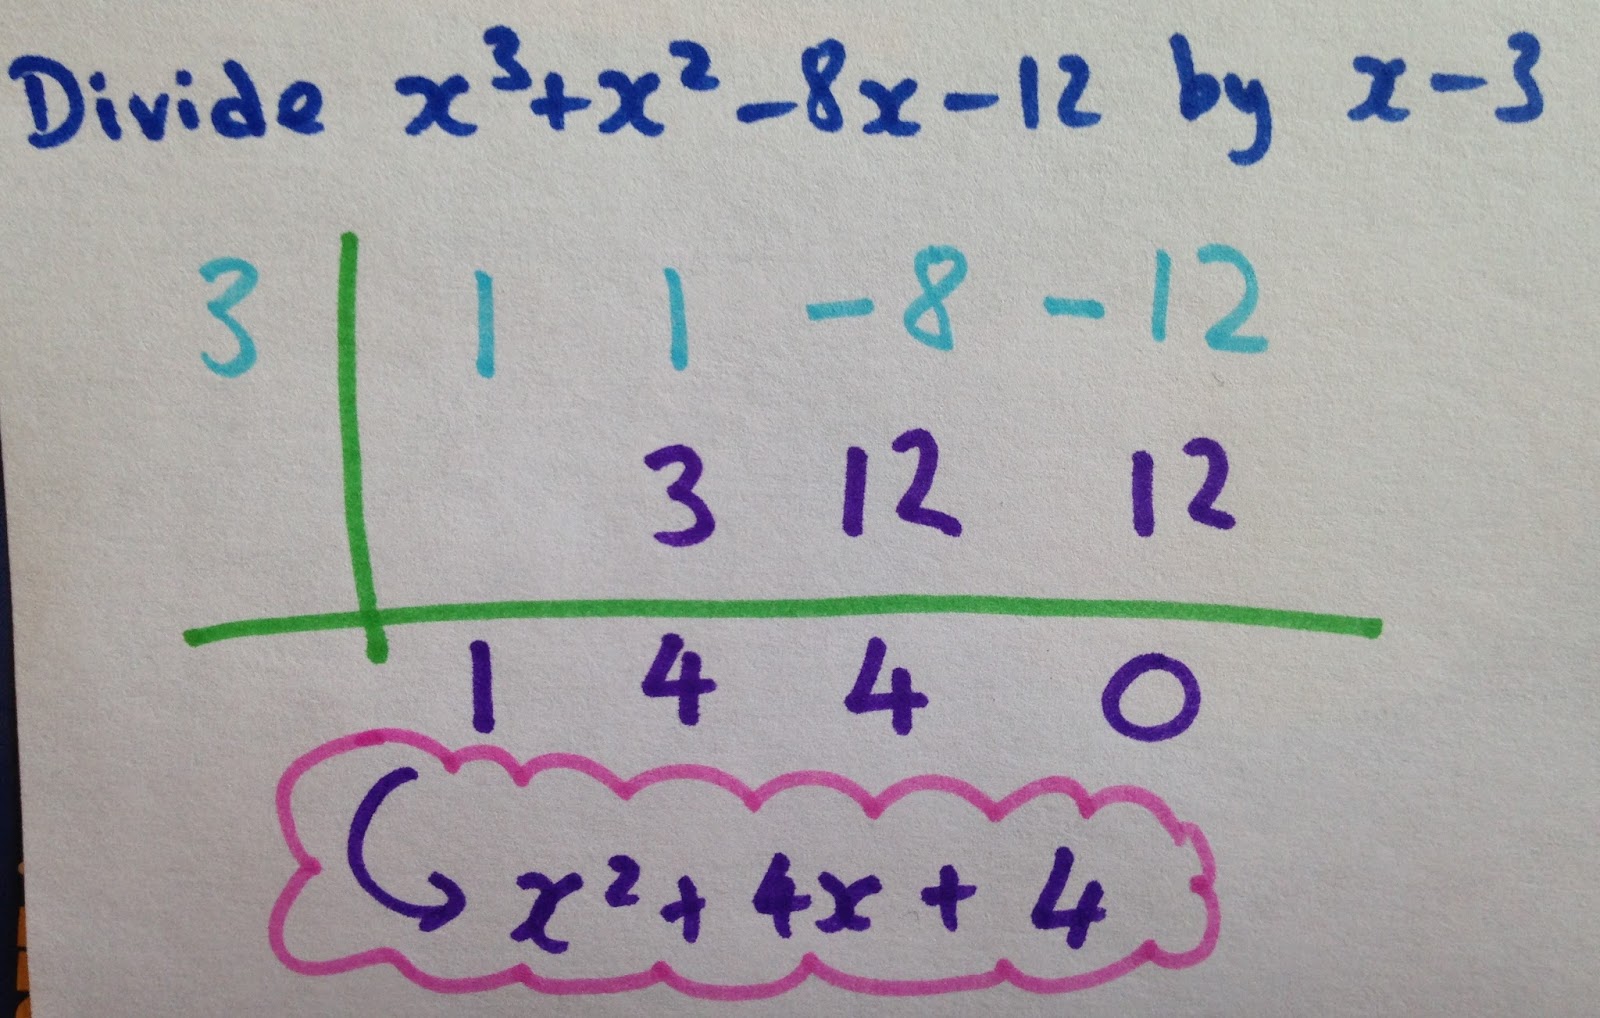 Divide x³+x²-8x-12 by x-3
3 1 1 -8 -12
3 12 12
1 4 4 0
x²+4x+4